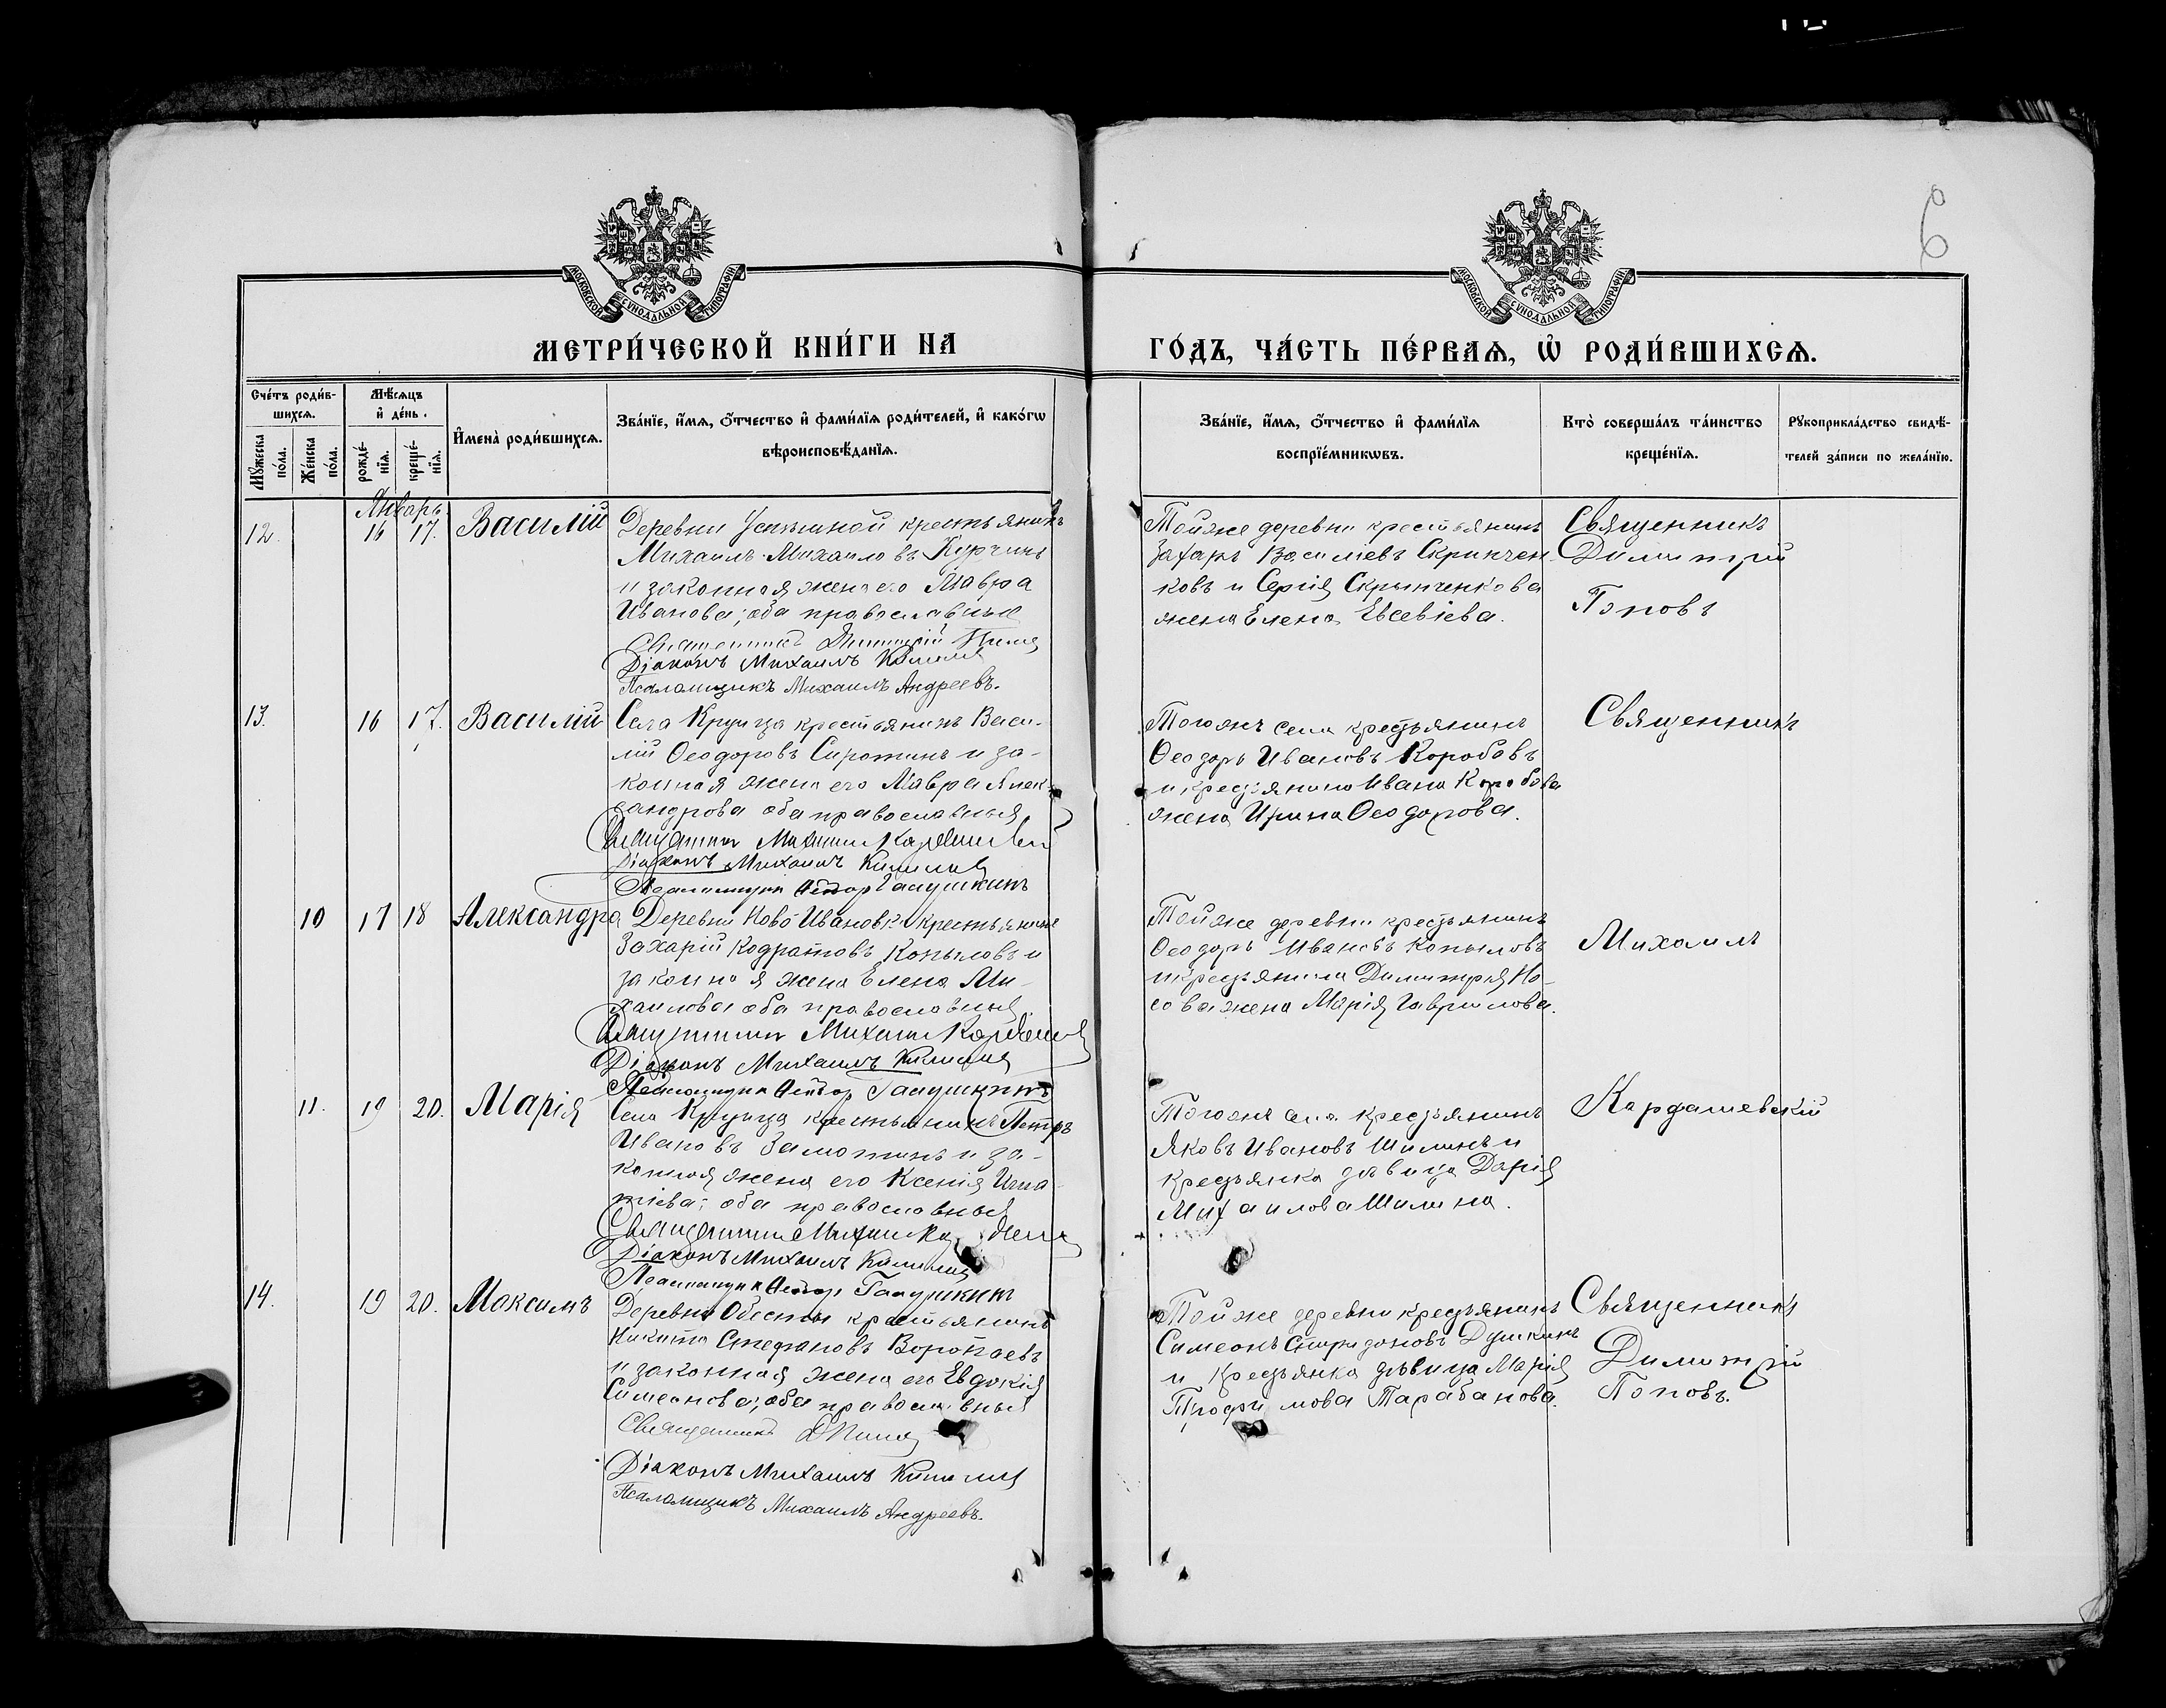 6
МОСКОВСКОЙ СѴНОДАЛЬНОЙ ТИПОГРАФІИ
МОСКОВСКОЙ СѴНОДАЛЬНОЙ ТИПОГРАФІИ
МЕТРИ́ЧЕСКОЙ КНИ́ГИ НА
ГО́ДЪ, ЧА́СТЬ ПЕ́РВАѦ, Ѡ҆ РОДИ́ВШИХСѦ.
Сче́тъ роди́в-
шихсѧ.
Мꙋ́жеска по́ла.
Же́нска по́ла.
Мѣ́сѧцъ
и҆ де́нь.
рожде́-
нїѧ.
креще́-
нїѧ.
И҆мена̀ роди́вшихсѧ.
Зва́нїе, и҆́мѧ, ѻ҆́тчество и҆ фами́лїѧ роди́телей, и҆ како́гѡ
вѣроисповѣ́данїѧ.
Зва́нїе, и҆́мѧ, ѻ҆́тчество и҆ фами́лїѧ
воспрїе́мникѡвъ.
Кто̀ соверша́лъ та́инство
креще́нїѧ.
Рꙋкоприкла́дство свидѣ́-
телей за́писи по жела́нїю.
Январь
12. 16 17. Василій
Деревни крестьянинъ
Михаилъ Михаиловъ Курчинъ
и законная жена его Мавра
Иванова; оба православные
Священникъ Димитрій Попов
Діаконъ Михаилъ
Псаломщикъ Михаилъ Андреевъ.
Той же деревни крестьянинъ
Захаръ Василіевъ Скрипчен
ковъ и Сергія Скрыпченкова
жена Елена Евсевіева.
Священникъ
Димитрій
Поповъ
13. 16 17. Василій
Села Круица крестьянинъ Васи-
лій Ѳеодоровъ Сиротинъ и за-
конная жена его Мавра Алек-
сандрова оба православныя
Священник Михаил Кардашевскій
Діаконъ Михаилъ
Псаломщик Галушкинъ
Тогоже села крестьянинъ
Ѳеодоръ Ивановъ Коробовъ
и крестьянина Ивана Коробова
жена Ирина Ѳеодорова.
Священникъ
10 17 18 Александра
Деревни Ново-Ивановки крестьянинъ
Захарій Кодратовъ Копыловъ и
законная жена Елена Ми-
хаилова оба православныя
Священник Михаил Кардашев
Діаконъ Михаилъ
Псаломщик Галушкинъ
Той же деревни крестьянинъ
Ѳеодоръ Ивановъ Копыловъ
и крестьянина Димитрія Но-
сова жена Марія Гаврилова.
Михаилъ
11. 19 20. Марія
Села Круица крестьянинъ Петръ
Ивановъ Замотинъ и за-
конная жена его Ксенія Игна
тіева; оба православныя
Священник Михаил
Діаконъ Михаилъ
Псаломщик Галушкинъ
Тогоже села крестьянинъ
Яковъ Ивановъ Шилинъ и
крестьянка дѣвица Дарія
Михаилова Шилина.
Кардашевскій
14. 19 20. Максимъ
Деревни крестьянинъ
Никита Стефановъ Воропаевъ
и законная жена его Евдокія
Симеонова; оба православныя
Священникъ Д Попов
Діаконъ Михаилъ
Псаломщикъ Михаилъ Андреевъ.
Той же деревни крестьянинъ
Симеонъ Спиридоновъ Душкинъ
и крестьянка дѣвица Марія
Трофимова Тарабанова.
Священникъ
Димитрій
Поповъ.